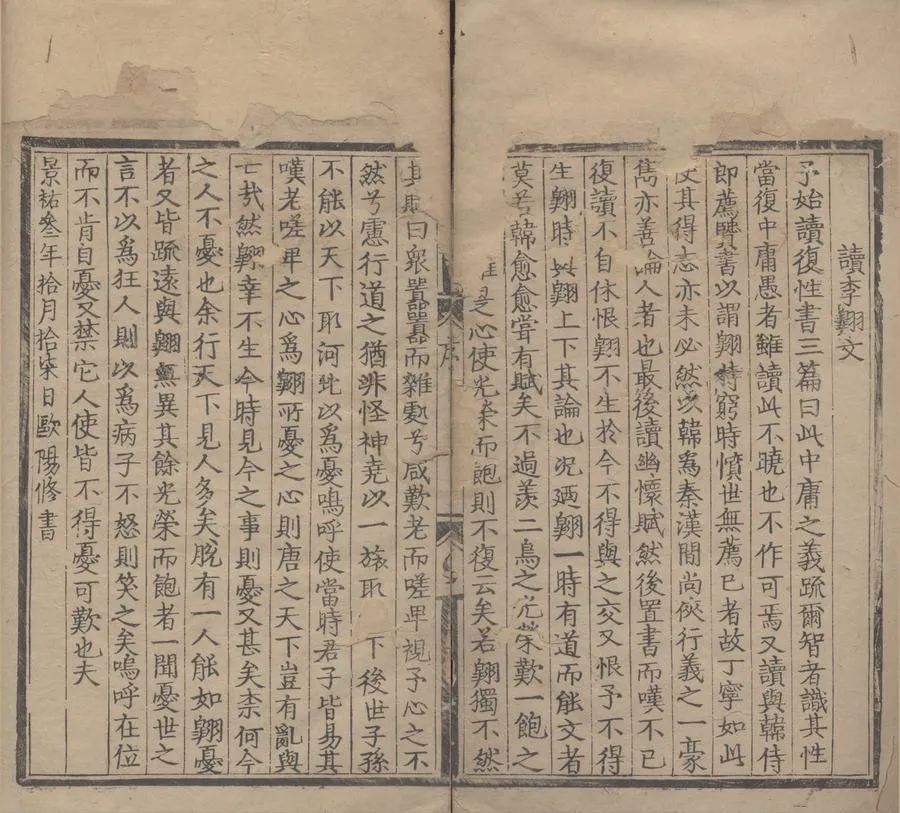 讀李翱文
予始讀復性書三篇曰此中庸之義疏爾智者識其性
當復中庸愚者雖讀此不曉也不作可焉又讀與韓侍
即薦賢書以謂翱特窮時憤世無薦已者故丁寧如此
使其得志亦未必然以韓為秦漢間尚俠行義之一豪
雋亦善論人者也最後讀幽懷賦然後置書而嘆不已
復讀不自休恨翱不生於今不得與之交又恨予不得
生翱時與翱上下其論也况廼翱一時有道而能文者
莫若韓愈愈嘗有賦矣不過羡二鳥之光榮歎一飽之
是心使光榮而飽則不復云矣若翱獨不然
其賦曰衆囂囂而雜處兮咸歎老而嗟卑視予心之不
然兮慮行道之猶非怪神堯以一旅取 下後世子孫
不能以天下取河北以爲憂嗚呼使當時君子皆易其
嘆老嗟卑之心爲翱所憂之心則唐之天下豈有亂與
亡㢤然翱幸不生今時見今之事則憂又甚矣柰何今
之人不憂也余行天下見人多矣脫有一人能如翱憂
者又皆疏遠與翱無異其餘光榮而飽者一聞憂世之
言不以爲狂人則以爲病子不怒則笑之矣嗚呼在位
而不肯自憂又禁它人使皆不得憂可歎也夫
景祐叄年拾月拾柒日歐陽修書